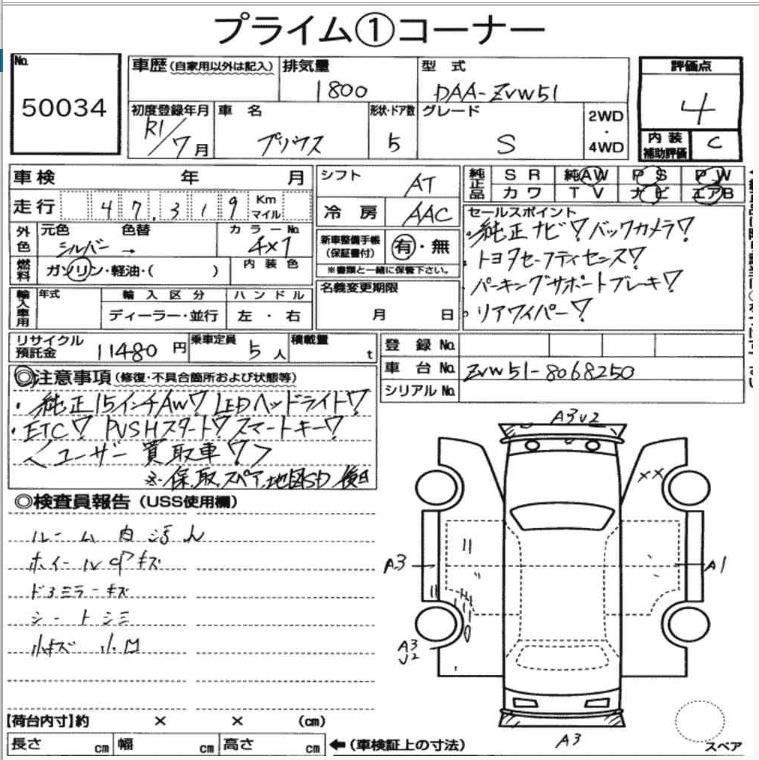 プライム①コーナー
No. 50034
車歴 (自家用以外は記入)
排気量 1800
型式 DAA-ZVW51
評価点 4
内装補助評価 C
初度登録年月 R1/7月
車名 プリウス
形状・ドア数 5
グレード S
2WD・4WD
車検 年 月
走行 47,319 Km マイル
シフト AT
冷房 AAC
純正品 SR 純AW PS PW
カワ TV ナビ エアB
外色 元色 シルバー 色替 →
カラーNo. 4X7
燃料 ガソリン・軽油・( )
内装色
新車整備手帳 (保証書付) 有・無
※書類と一緒に保管下さい。
名義変更期限
月 日
セールスポイント
・純正ナビ!バックカメラ!
・トヨタセーフティセンス!
・パーキングサポートブレーキ!
・リアワイパー!
輸入車用 年式 輸入区分 ハンドル
ディーラー・並行 左・右
リサイクル預託金 11480円
乗車定員 5人
積載量 t
登録No.
車台No. ZVW51-8068250
シリアルNo.
◎注意事項 (修復・不具合箇所および状態等)
・純正15インチAW! LEDヘッドライト!
・ETC! PUSHスタート!スマートキー!
<ユーザー買取車!>
※保、取、スペア、地図SD 後日
◎検査員報告 (USS使用欄)
ルーム内汚れ
ホイールCPキズ
ドアミラーキズ
シートシミ
小キズ 小凹
A3 V2
XX
A3
A1
A3
V2
A3
スペア
【荷台内寸】約 × × (cm)
長さ cm 幅 cm 高さ cm ← (車検証上の寸法)